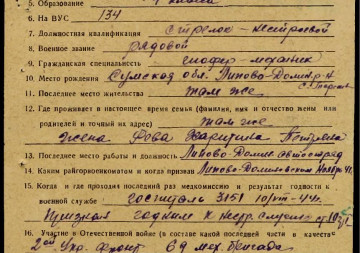 5. Образование
6. На ВУС 134
7. Должностная квалификация стрелок - нестроевой
8. Военное звание рядовой
9. Гражданская специальность шофер - механик
10. Место рождения Сумская обл. Липово-Долин. р-н
11. Последнее место жительства там же
12. Где проживает в настоящее время семья (фамилия, имя и отчество жены или
родителей и точный их адрес) там же
жена
13. Последнее место работы и должность Липово-Долин.
14. Каким райгорвоенкоматом и когда призван Липово-Долинским
15. Когда и где проходил последний раз медкомиссию и результат годности к
военной службе госпиталь 3151
признан годным к
16. Участие в Отечественной войне (в составе какой последней части и в качестве
2ой Укр. фронт 69 мех. бригада